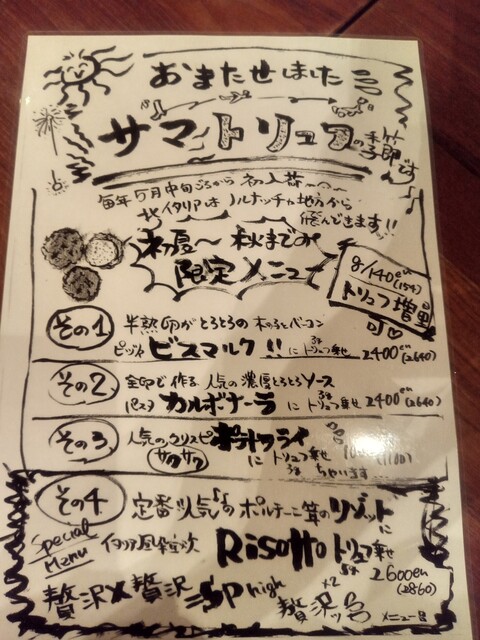 おまたせしました
サマートリュフの季節です
毎年5月中旬ごろから初入荷〜〜〜
イタリアはノルチャ地方から
飛んできます!!
初夏〜秋までの
限定メニュー
g/140en(154)
トリュフ増量
可♡
その1 半熟卵がとろとろの きのことベーコン
ピッツァ ビスマルク!! に 3g トリュフ乗せ 2400en(2640)
その2 全卵で作る 人気の濃厚とろとろソース
パスタ カルボナーラ に 3g トリュフ乗せ 2400en(2640)
その3 人気のクリスピー ポテトフライ
サクサク に トリュフ乗せ (1100)
3g ちゃいます
その4 定番人気の ポルチーニ茸の リゾットに
Special Menu イタリア風雑炊 Risotto トリュフ乗せ
2600en(2860)
贅沢×贅沢 SP high ×2
贅沢ッ メニュー